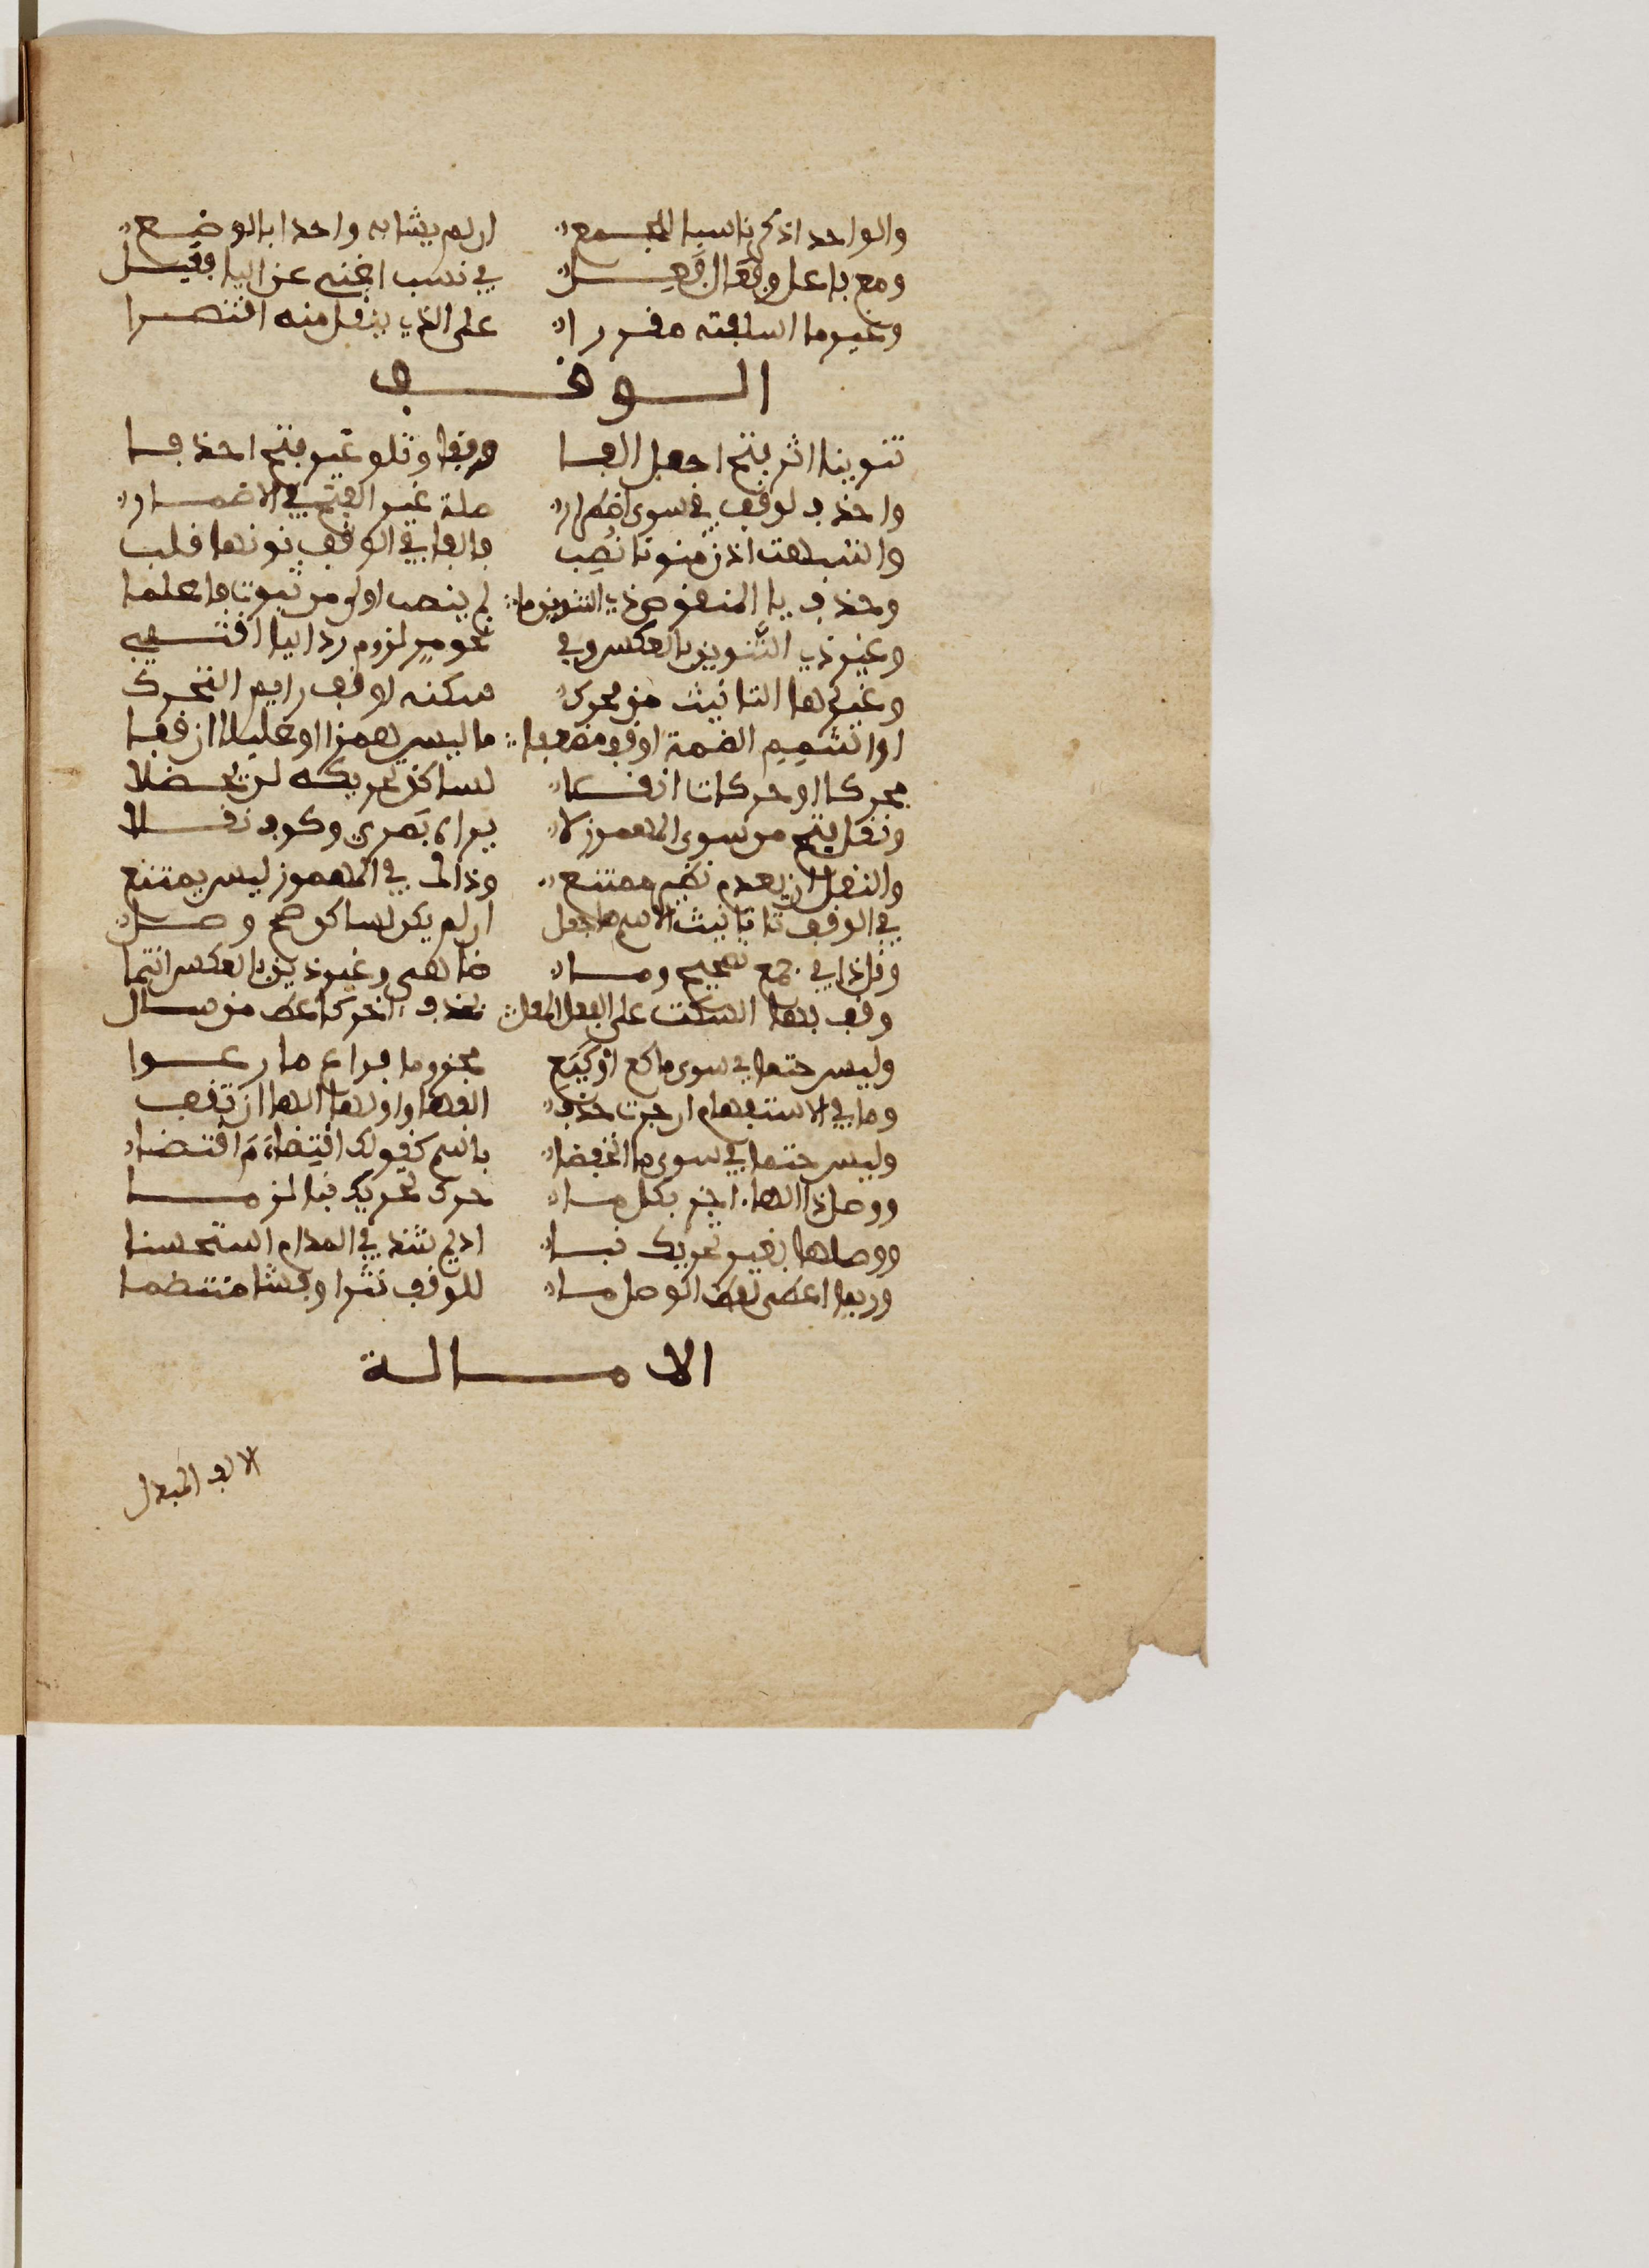 والواحد اذكر ناسبا للجمع ان لم يشابه واحدا بالوضع
ومع فاعل وفعال فعل في نسب اغنى عن اليا فقبل
وغير ما اسلفته مقررا على الذي ينقل منه اقتصرا
الوقف
تنوينا اثر فتح اجعل الفا وقفا وتلو غير فتح احذفا
واحذف لوقف في سوى اضطرار صلة غير الفتح في الاضمار
واشبهت اذن منونا نصب فالفا في الوقف نونها قلب
وحذف يا المنقوص ذي التنوين ما لم ينصب اولى من ثبوت فاعلما
وغير ذي التنوين بالعكس وفي نحو مر لزوم رد اليا اقتفي
وغير ها التانيث من محرك سكنه او قف رايم التحرك
او اشمم الضمة او قف مضعفا ما ليس همزا او عليلا ان قفا
محركا او حركات انقلا لساكن تحريكه لن يحضلا
ونقل فتح من سوى المهموز لا يراه بصري وكوف نقلا
والنقل ان يعدم نظير ممتنع وذاك في المهموز ليس يمتنع
في الوقف تا تانيث الاسم ها جعل ان لم يكن لساكن صح وصل
وقل ذا في جمع تصحيح وما ضاهى وغير ذين بالعكس انتما
وقف بها السكت على الفعل المعل بحذف اخر كاعط من سال
وليس حتما في سوى ما كع او كيع مجزوما فراع ما رعوا
وما في الاستفهام ان جرت حذف الفها واولها الها ان تقف
وليس حتما في سوى ما انخفضا باسم كقولك اقتضاء م اقتضا
ووصل ذا الها اجز بكل ما حرك تحريك بنا لزما
ووصلها بغير تحريك بنا اديم شذ في المدام استحسنا
وربما اعطي لفظ الوصل ما للوقف نثرا وفشا منتظما
الامالة
الالف المبدل